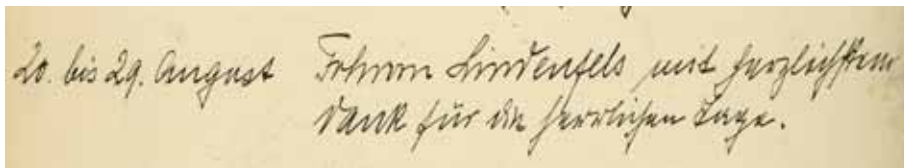 20. bis 29. August Frhrrn Lindenfels mit herzlichstem
Dank für die herrlichen Tage.